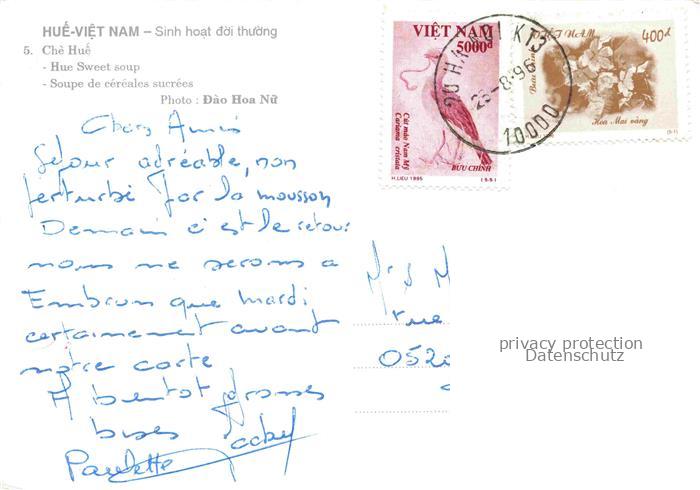 HUẾ-VIỆT NAM – Sinh hoạt đời thường
5. Chè Huế
- Hue Sweet soup
- Soupe de céréales sucrées
Photo : Đào Hoa Nữ
Chers Amis
Séjour agréable, non
perturbé par la mousson
Demain c'est le retour
nous ne serons a
Embrun que Mardi
certainement avant
notre carte
A bientot grosses
bises Jacky
Paulette
VIỆT NAM
5000đ
Cúi mào Nam Mỹ
Cariama cristata
BƯU CHÍNH
H.LIEU 1995 (5-5)
VIỆT NAM
400đ
Bưu chính
Hoa Mai vàng
HÀ NỘI KT3
26-8-96
10000
Mrs M
rue
0520
privacy protection
Datenschutz